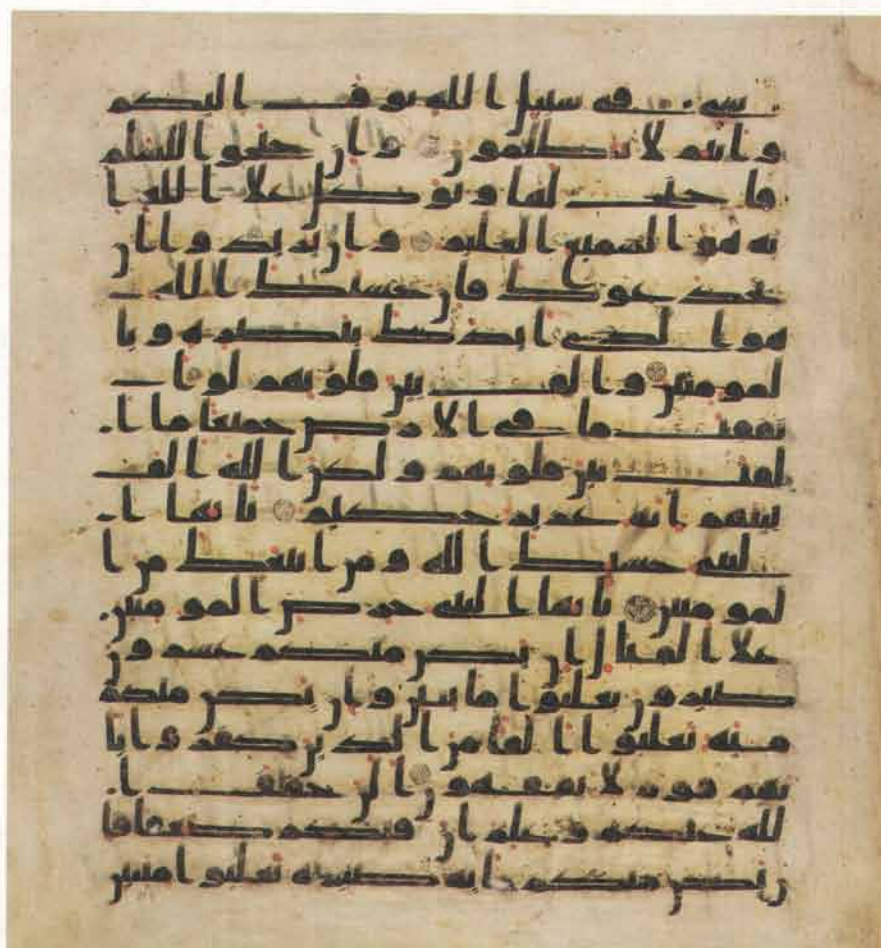 شيء في سبيل الله يوف اليكم
وانتم لا تظلمون وان جنحوا للسلم
فاجنح لها وتوكل علا الله ا
نه هو السميع العليم وان يريدوا ان
يخدعوك فان حسبك الله
هو الذي ايدك بنصره وبا
لمومنين والف بين قلوبهم لو ا
نفقت ما في الارض جميعا ما ا
لفت بين قلوبهم ولكن الله الف
بينهم انه عزيز حكيم يايها ا
لنبي حسبك الله ومن اتبعك من ا
لمومنين يايها النبي حرض المومنين
علا القتال ان يكن منكم عشرون
صبرون يغلبوا مايتين وان يكن منكم
مايه يغلبوا الفا من الذين كفروا با
نهم قوم لا يفقهون الن خفف ا
لله عنكم وعلم ان فيكم ضعفا فا
ن يكن منكم مايه صبره يغلبوا مايتين